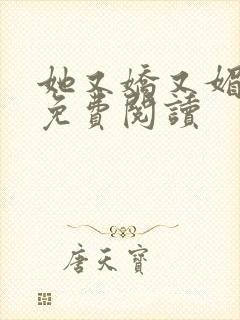 她又嬌又媚
免費閱讀
唐天寶